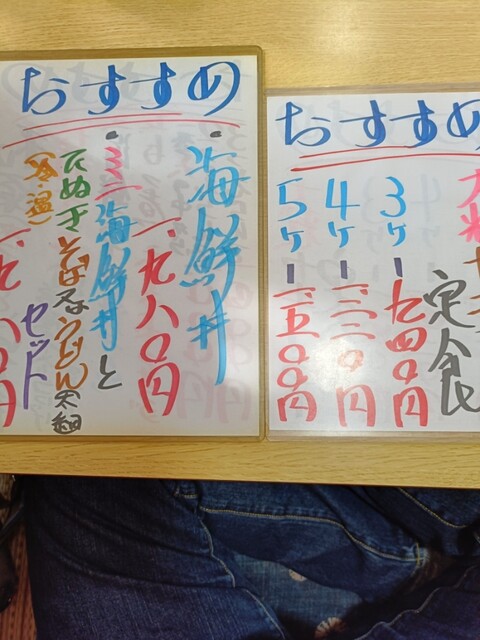 おすすめ
・海鮮丼
一、九八〇円
・ミニ海鮮丼と
たぬきそば又はうどん
(冷・温)
セット
おすすめ
定食
3ヶー九四〇円
4ヶー一二二〇円
5ヶー一五〇〇円